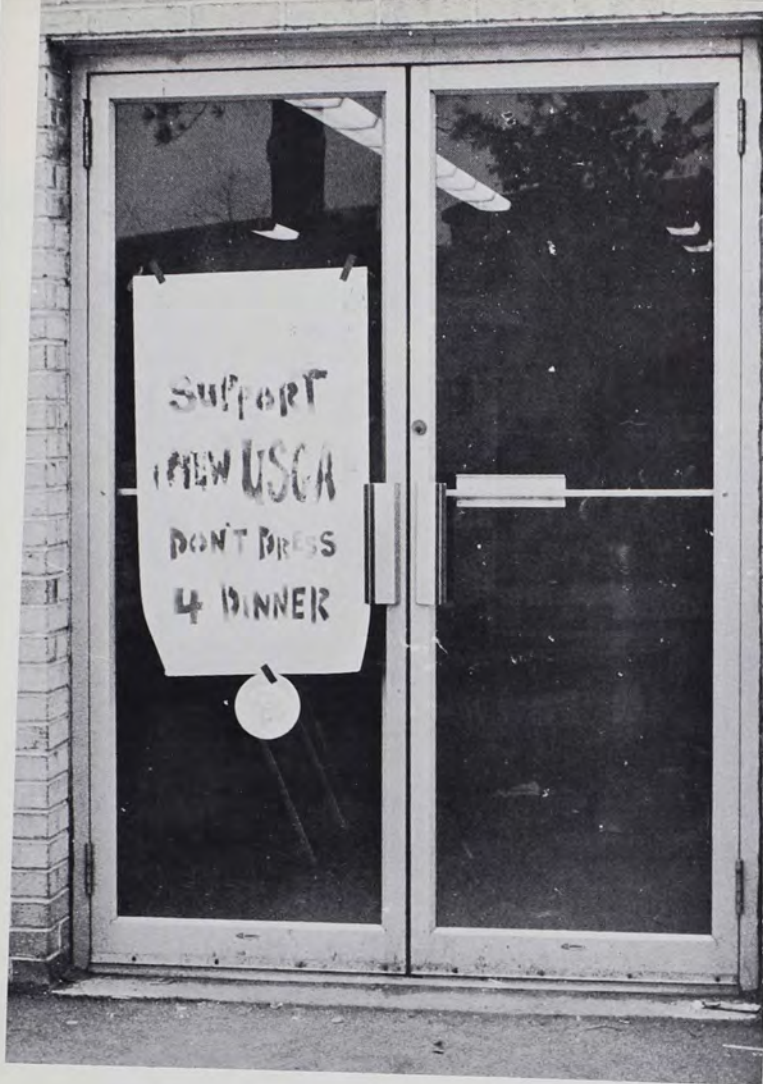 SUPPORT
USGA
DON'T DRESS
4 DINNER